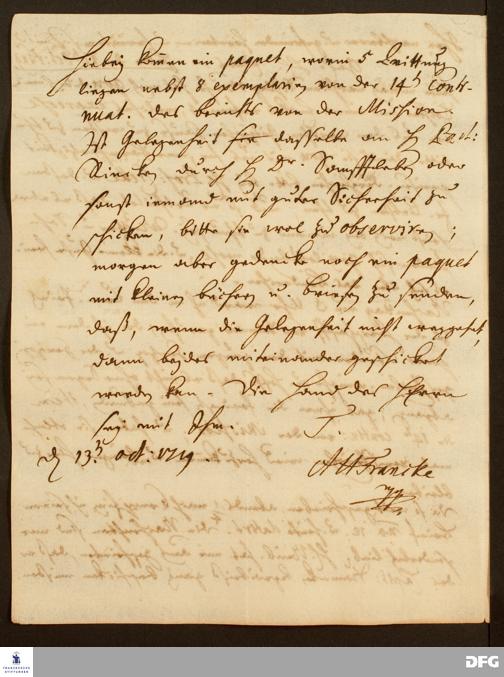 Hiebey kommen ein paquet, worin 5 Quittung
liegen nebst 8 exemplarien von der 14t Conti-
nuat. des berichts von der Mission.
Ist Gelegenheit dasselbe an H Past:
durch H Dr. oder
sonst jemand mit guter Sicherheit zu
schicken, bitte sie wol zu observiren;
morgen aber gedencke noch ein paquet
mit kleinen büchern u. briefen zu senden,
daß, wenn die Gelegenheit nicht weggehet,
dann beydes miteinander geschicket
werden kan. Die Hand des Herrn
sey mit Ihm. T.
d 13. oct: 1719.
AHFrancke
FRANCKESCHE
STIFTUNGEN
DFG